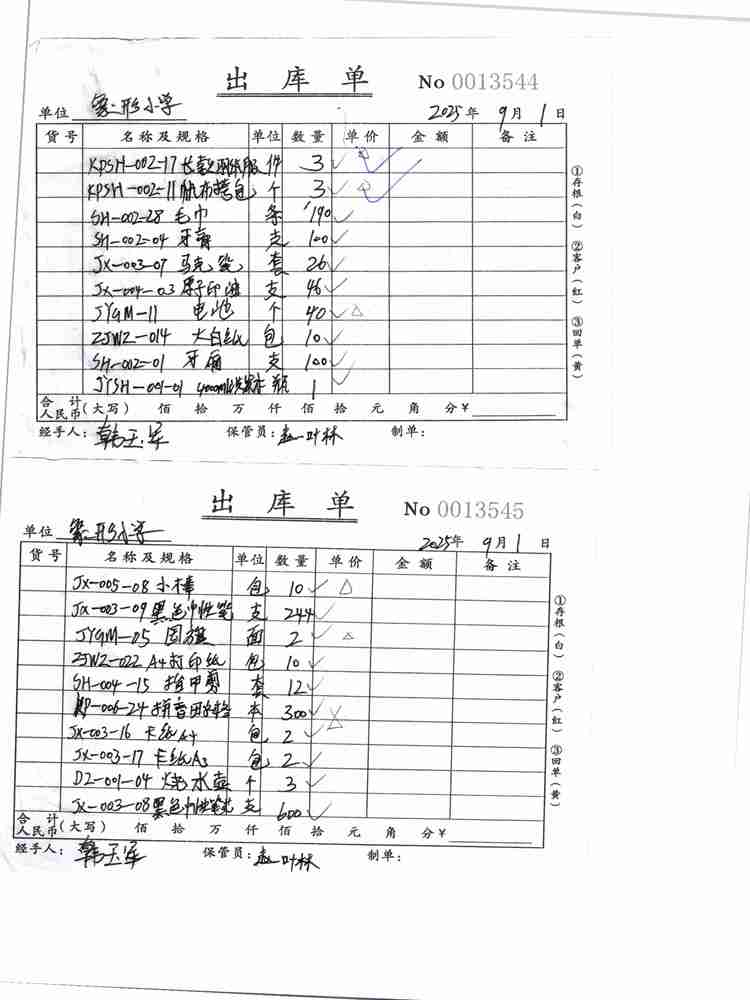 出 库 单 No 0013544
单位 象形小学 2025年 9月 1日
货号 名称及规格 单位 数量 单价 金额 备注
KPSH-002-17 长款 服 件 3
KPSH-002-11 帆布挎包 个 3
SH-002-28 毛巾 条 190
SH-002-04 牙膏 支 100
JX-003-07 马克笔 套 26
JX-004-03 原子印油 支 46
JYGM-11 电池 个 40 △
ZJWZ-014 大白纸 包 10
SH-002-01 牙刷 支 100
JYSH-001-01 瓶 1
合计人民币(大写) 佰 拾 万 仟 佰 拾 元 角 分¥
经手人:韩玉军 保管员:赵叶林 制单:
①存根(白) ②客户(红) ③回单(黄)
出 库 单 No 0013545
单位 象形小学 2025年 9月 1日
货号 名称及规格 单位 数量 单价 金额 备注
JX-005-08 小棒 包 10 △
JX-003-09 黑色中性笔 支 244
JYGM-05 国旗 面 2 △
ZJWZ-022 A4打印纸 包 10
SH-004-15 指甲剪 套 12
XP-006-24 拼音田字格 本 300 △
JX-003-16 卡纸A4 包 2
JX-003-17 卡纸A3 包 2
DZ-001-04 烧水壶 个 3
JX-003-08 黑色中性笔芯 支 600
合计人民币(大写) 佰 拾 万 仟 佰 拾 元 角 分¥
经手人:韩玉军 保管员:赵叶林 制单:
①存根(白) ②客户(红) ③回单(黄)